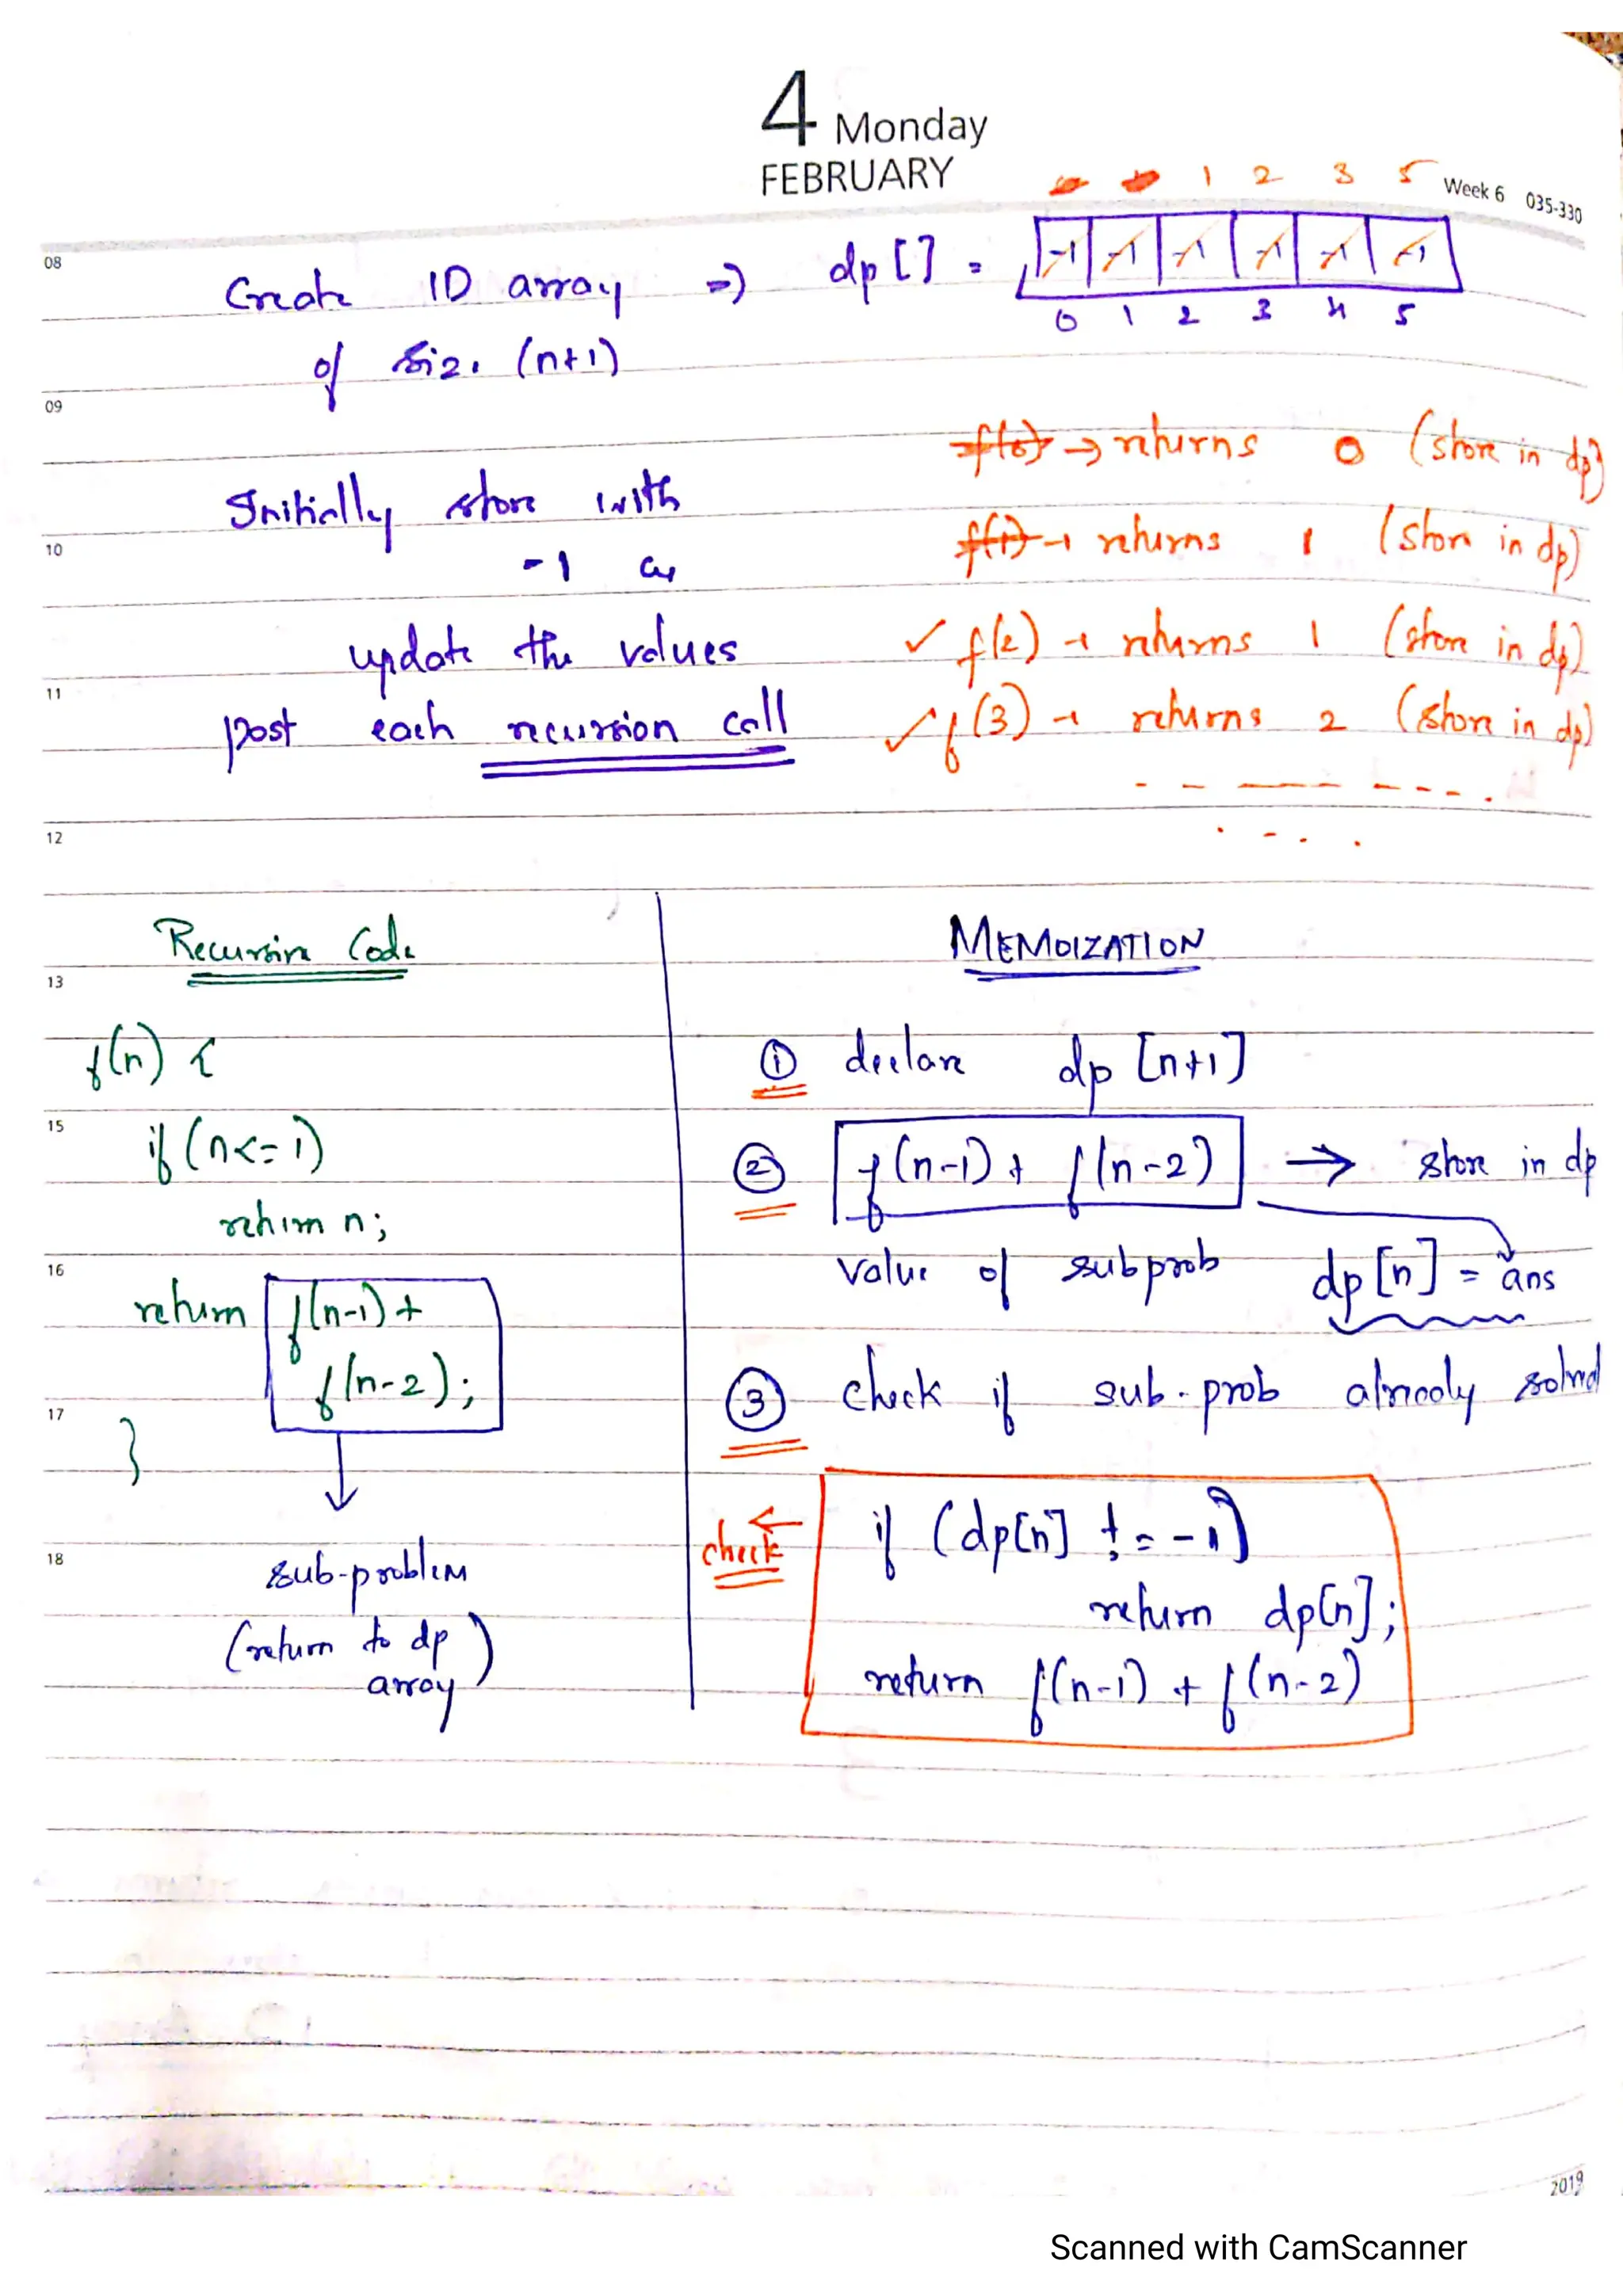 4 Monday
FEBRUARY
Week 6 035-330
1 2 3 5
08
Create 1D array => dp[] = -1 -1 -1 -1 -1 -1
0 1 2 3 4 5
of size (n+1)
09
f(0) → returns 0 (store in dp)
Initially store with
10
-1 &
f(1) → returns 1 (store in dp)
update the values
✓ f(2) → returns 1 (store in dp)
11
post each recursion call
✓ f(3) → returns 2 (store in dp)
12
Recursive Code
13
f(n) {
15
if (n<=1)
return n;
16
return f(n-1) +
f(n-2);
17
}
18
sub-problem
(return to dp
array)
MEMOIZATION
① declare dp [n+1]
② f(n-1) + f(n-2) → store in dp
value of subprob dp[n] = ans
③ check if sub-prob already solved
check ← if (dp[n] != -1)
return dp[n];
return f(n-1) + f(n-2)
2019
Scanned with CamScanner